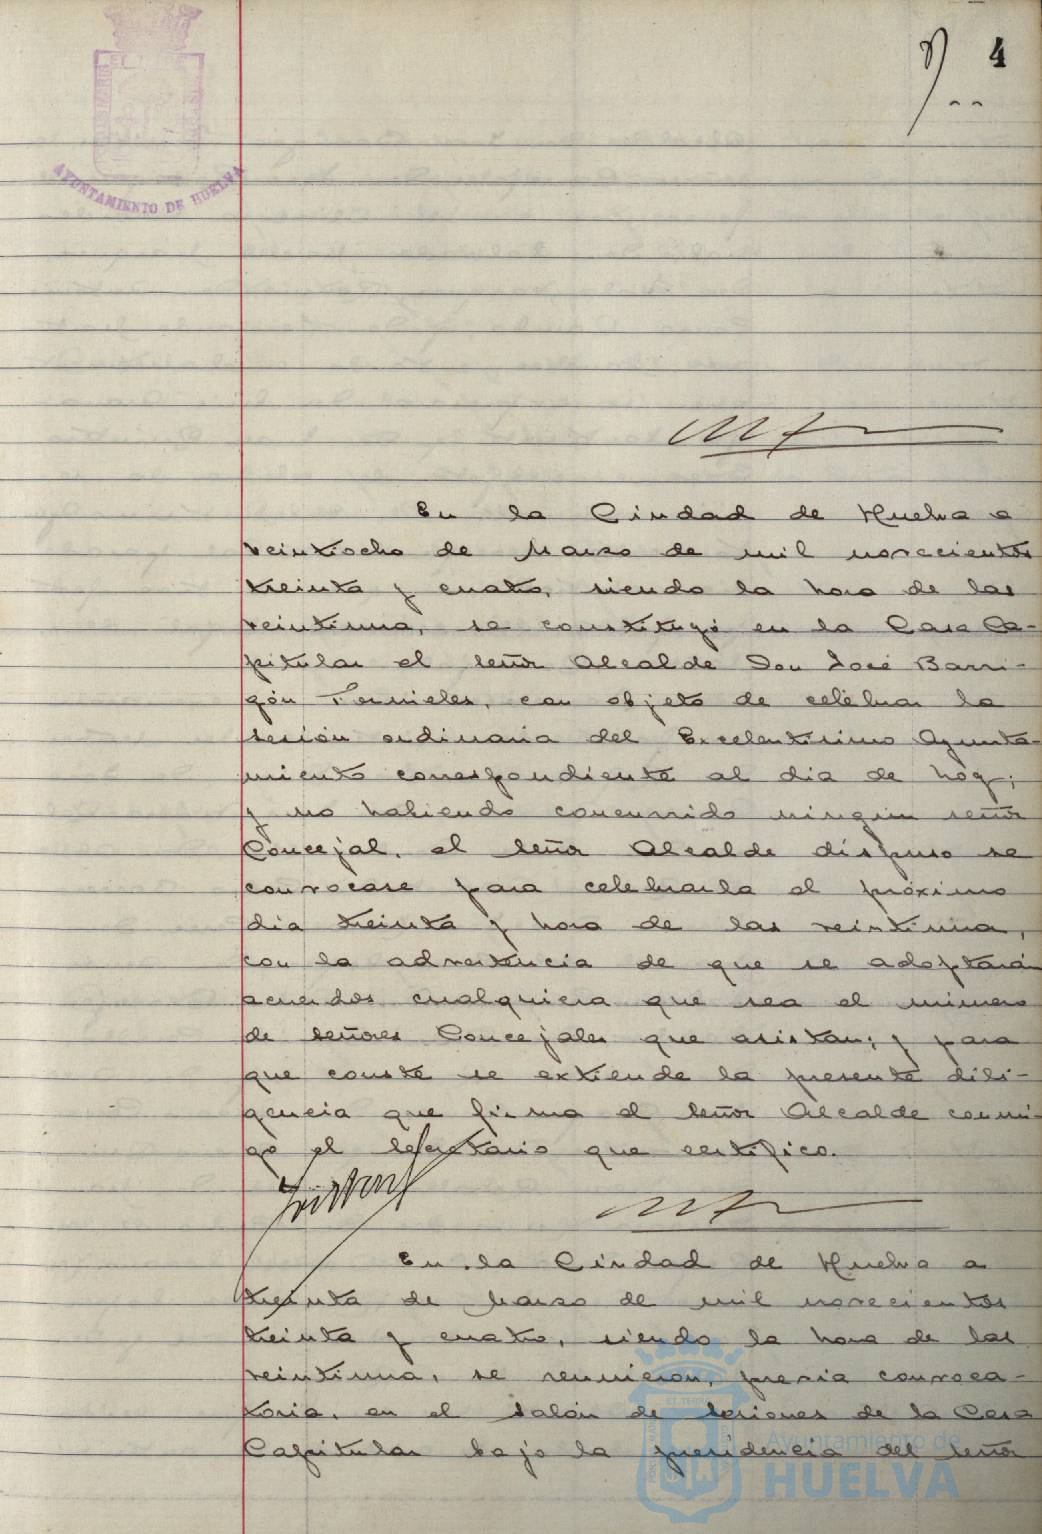 4
AYUNTAMIENTO DE HUELVA
En la Ciudad de Huelva a
veintiocho de Marzo de mil novecientos
treinta y cuatro, siendo la hora de las
veintiuna, se constituyó en la Casa Ca-
pitular el señor Alcalde Don José Barri-
gón Fornieles, con objeto de celebrar la
sesión ordinaria del Excelentísimo Ayunta-
miento correspondiente al día de hoy;
y no habiendo concurrido ningún señor
Concejal, el señor Alcalde dispuso se
convocase para celebrarla el próximo
día treinta y hora de las veintiuna,
con la advertencia de que se adoptarán
acuerdos cualquiera que sea el número
de señores Concejales que asistan; y para
que conste se extiende la presente dili-
gencia que firma el señor Alcalde conmi-
go el Secretario que certifico.
En la Ciudad de Huelva a
treinta de Marzo de mil novecientos
treinta y cuatro, siendo la hora de las
veintiuna, se reunieron, previa convoca-
toria, en el salón de sesiones de la Casa
Capitular bajo la presidencia del señor
Ayuntamiento de
HUELVA